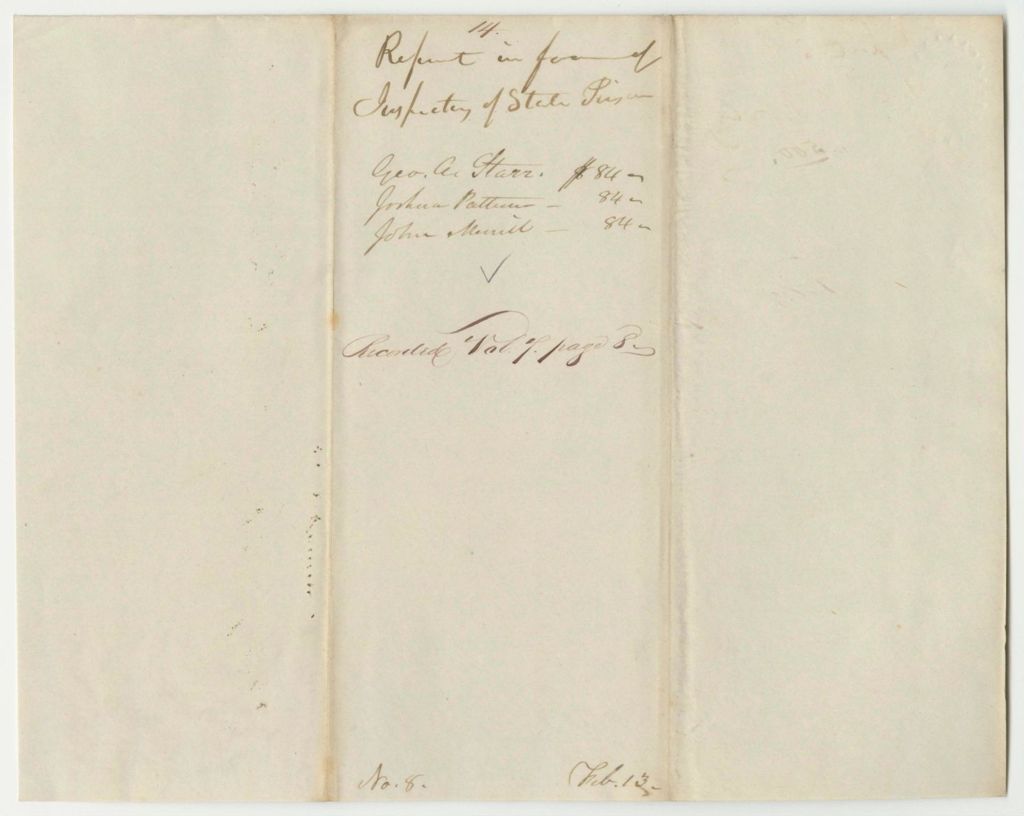 14.
Report in favor of
Inspectors of State Prison
Geo. A. Starr. $84 -
Joshua Patterson - 84 -
John Merrill - 84 -
Recorded Vol. 7. page 8 -
No. 8.
Feb. 13 -
500.